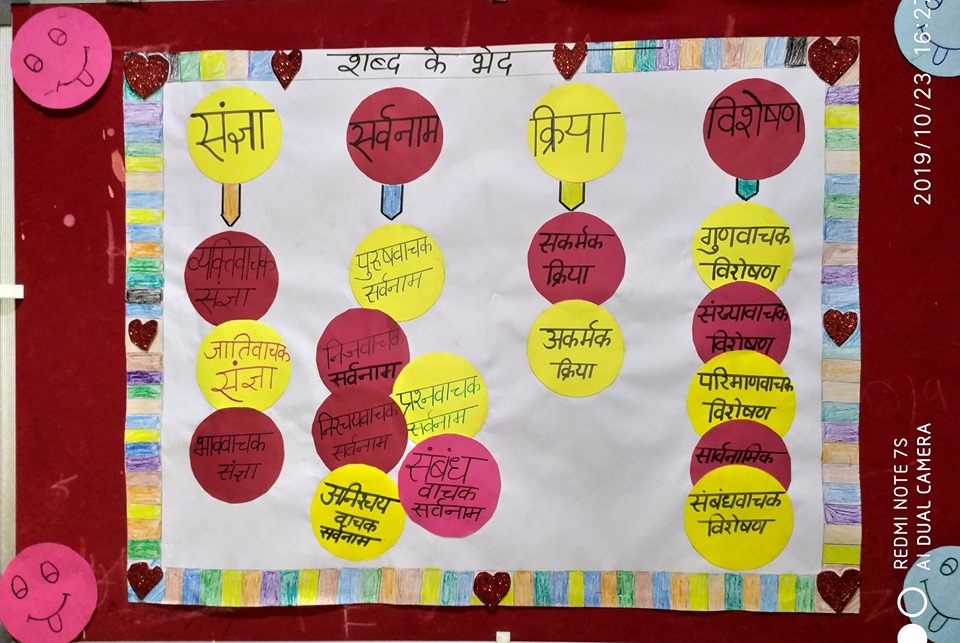 शब्द के भेद
संज्ञा
सर्वनाम
क्रिया
विशेषण
व्यक्तिवाचक
संज्ञा
जातिवाचक
संज्ञा
भाववाचक
संज्ञा
पुरुषवाचक
सर्वनाम
निजवाचक
सर्वनाम
प्रश्नवाचक
सर्वनाम
निश्चयवाचक
सर्वनाम
संबंध
वाचक
सर्वनाम
अनिश्चय
वाचक
सर्वनाम
सकर्मक
क्रिया
अकर्मक
क्रिया
गुणवाचक
विशेषण
संख्यावाचक
विशेषण
परिमाणवाचक
विशेषण
सार्वनामिक
संबंधवाचक
विशेषण
2019/10/23 16:27
REDMI NOTE 7S
AI DUAL CAMERA